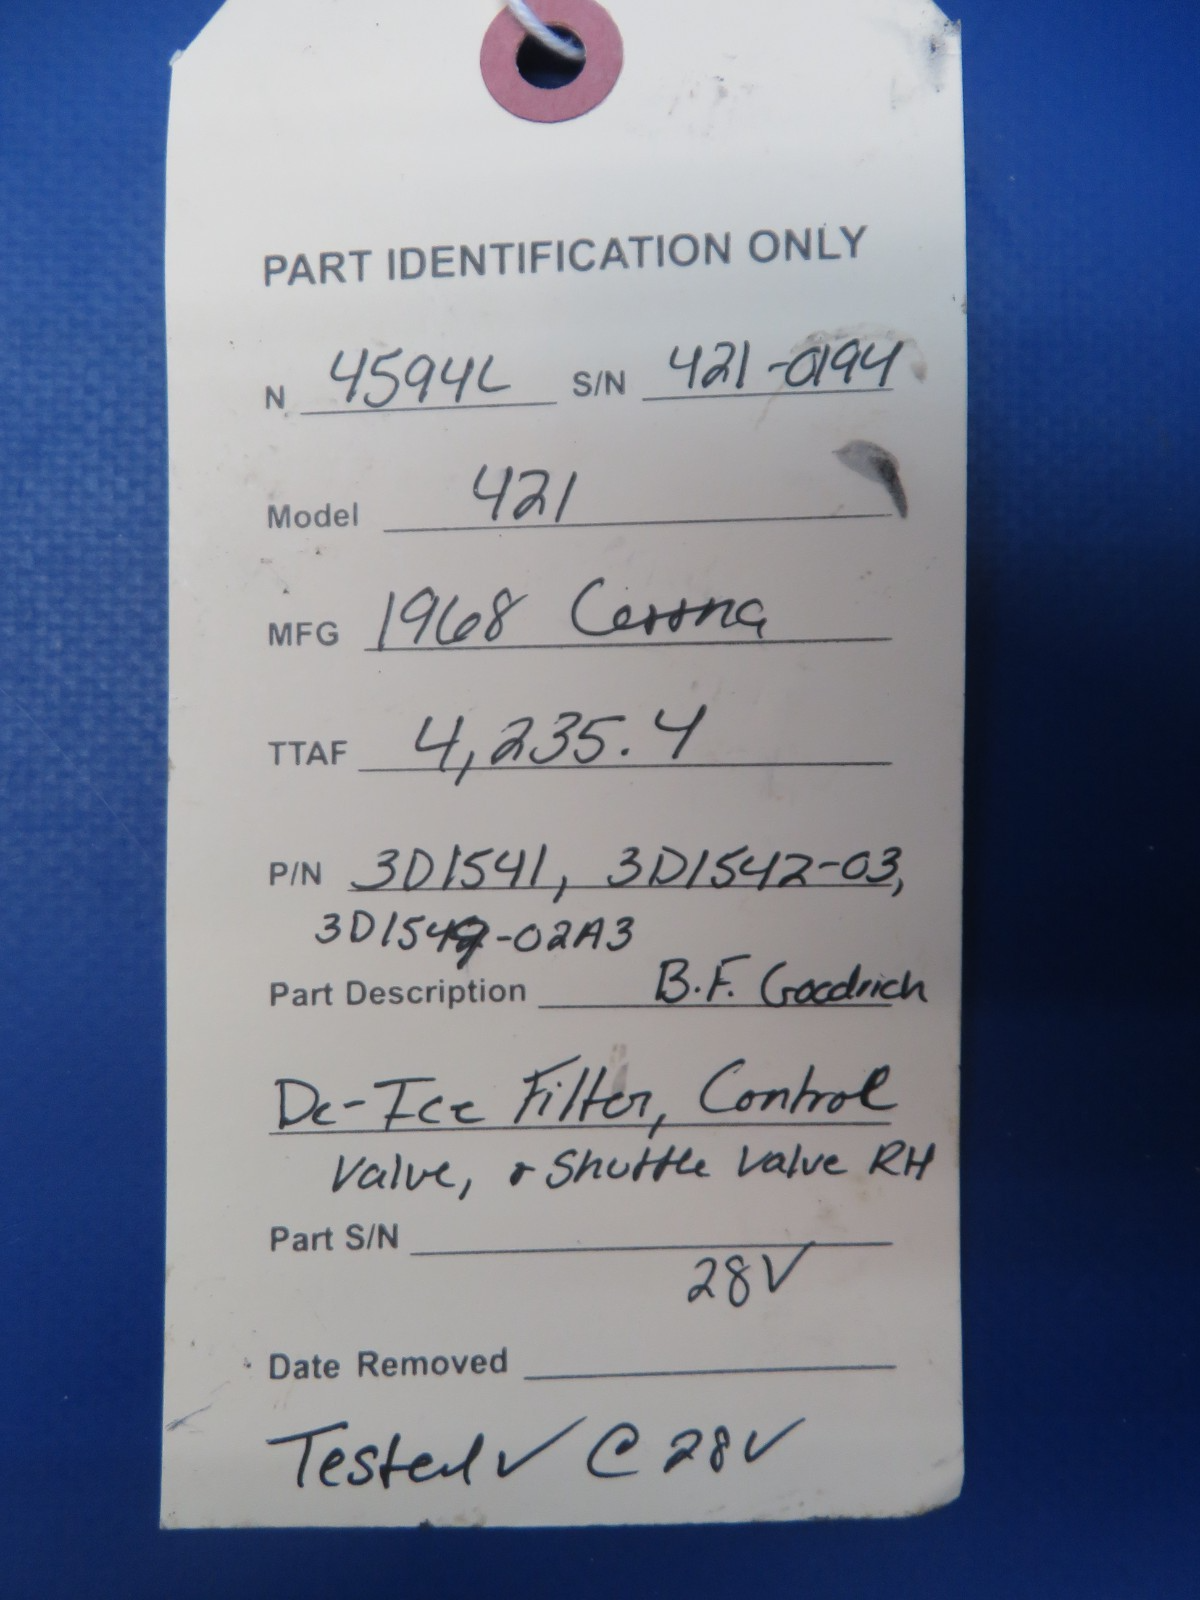 PART IDENTIFICATION ONLY
N 4594L S/N 421-0194
Model 421
MFG 1968 Cessna
TTAF 4,235.4
P/N 3D1541, 3D1542-03,
-02A3
Part Description B.F. Goodrich
De-Ice Filter, Control
Valve, & Shuttle Valve RH
Part S/N
28V
Date Removed
Tested ✓ @ 28V